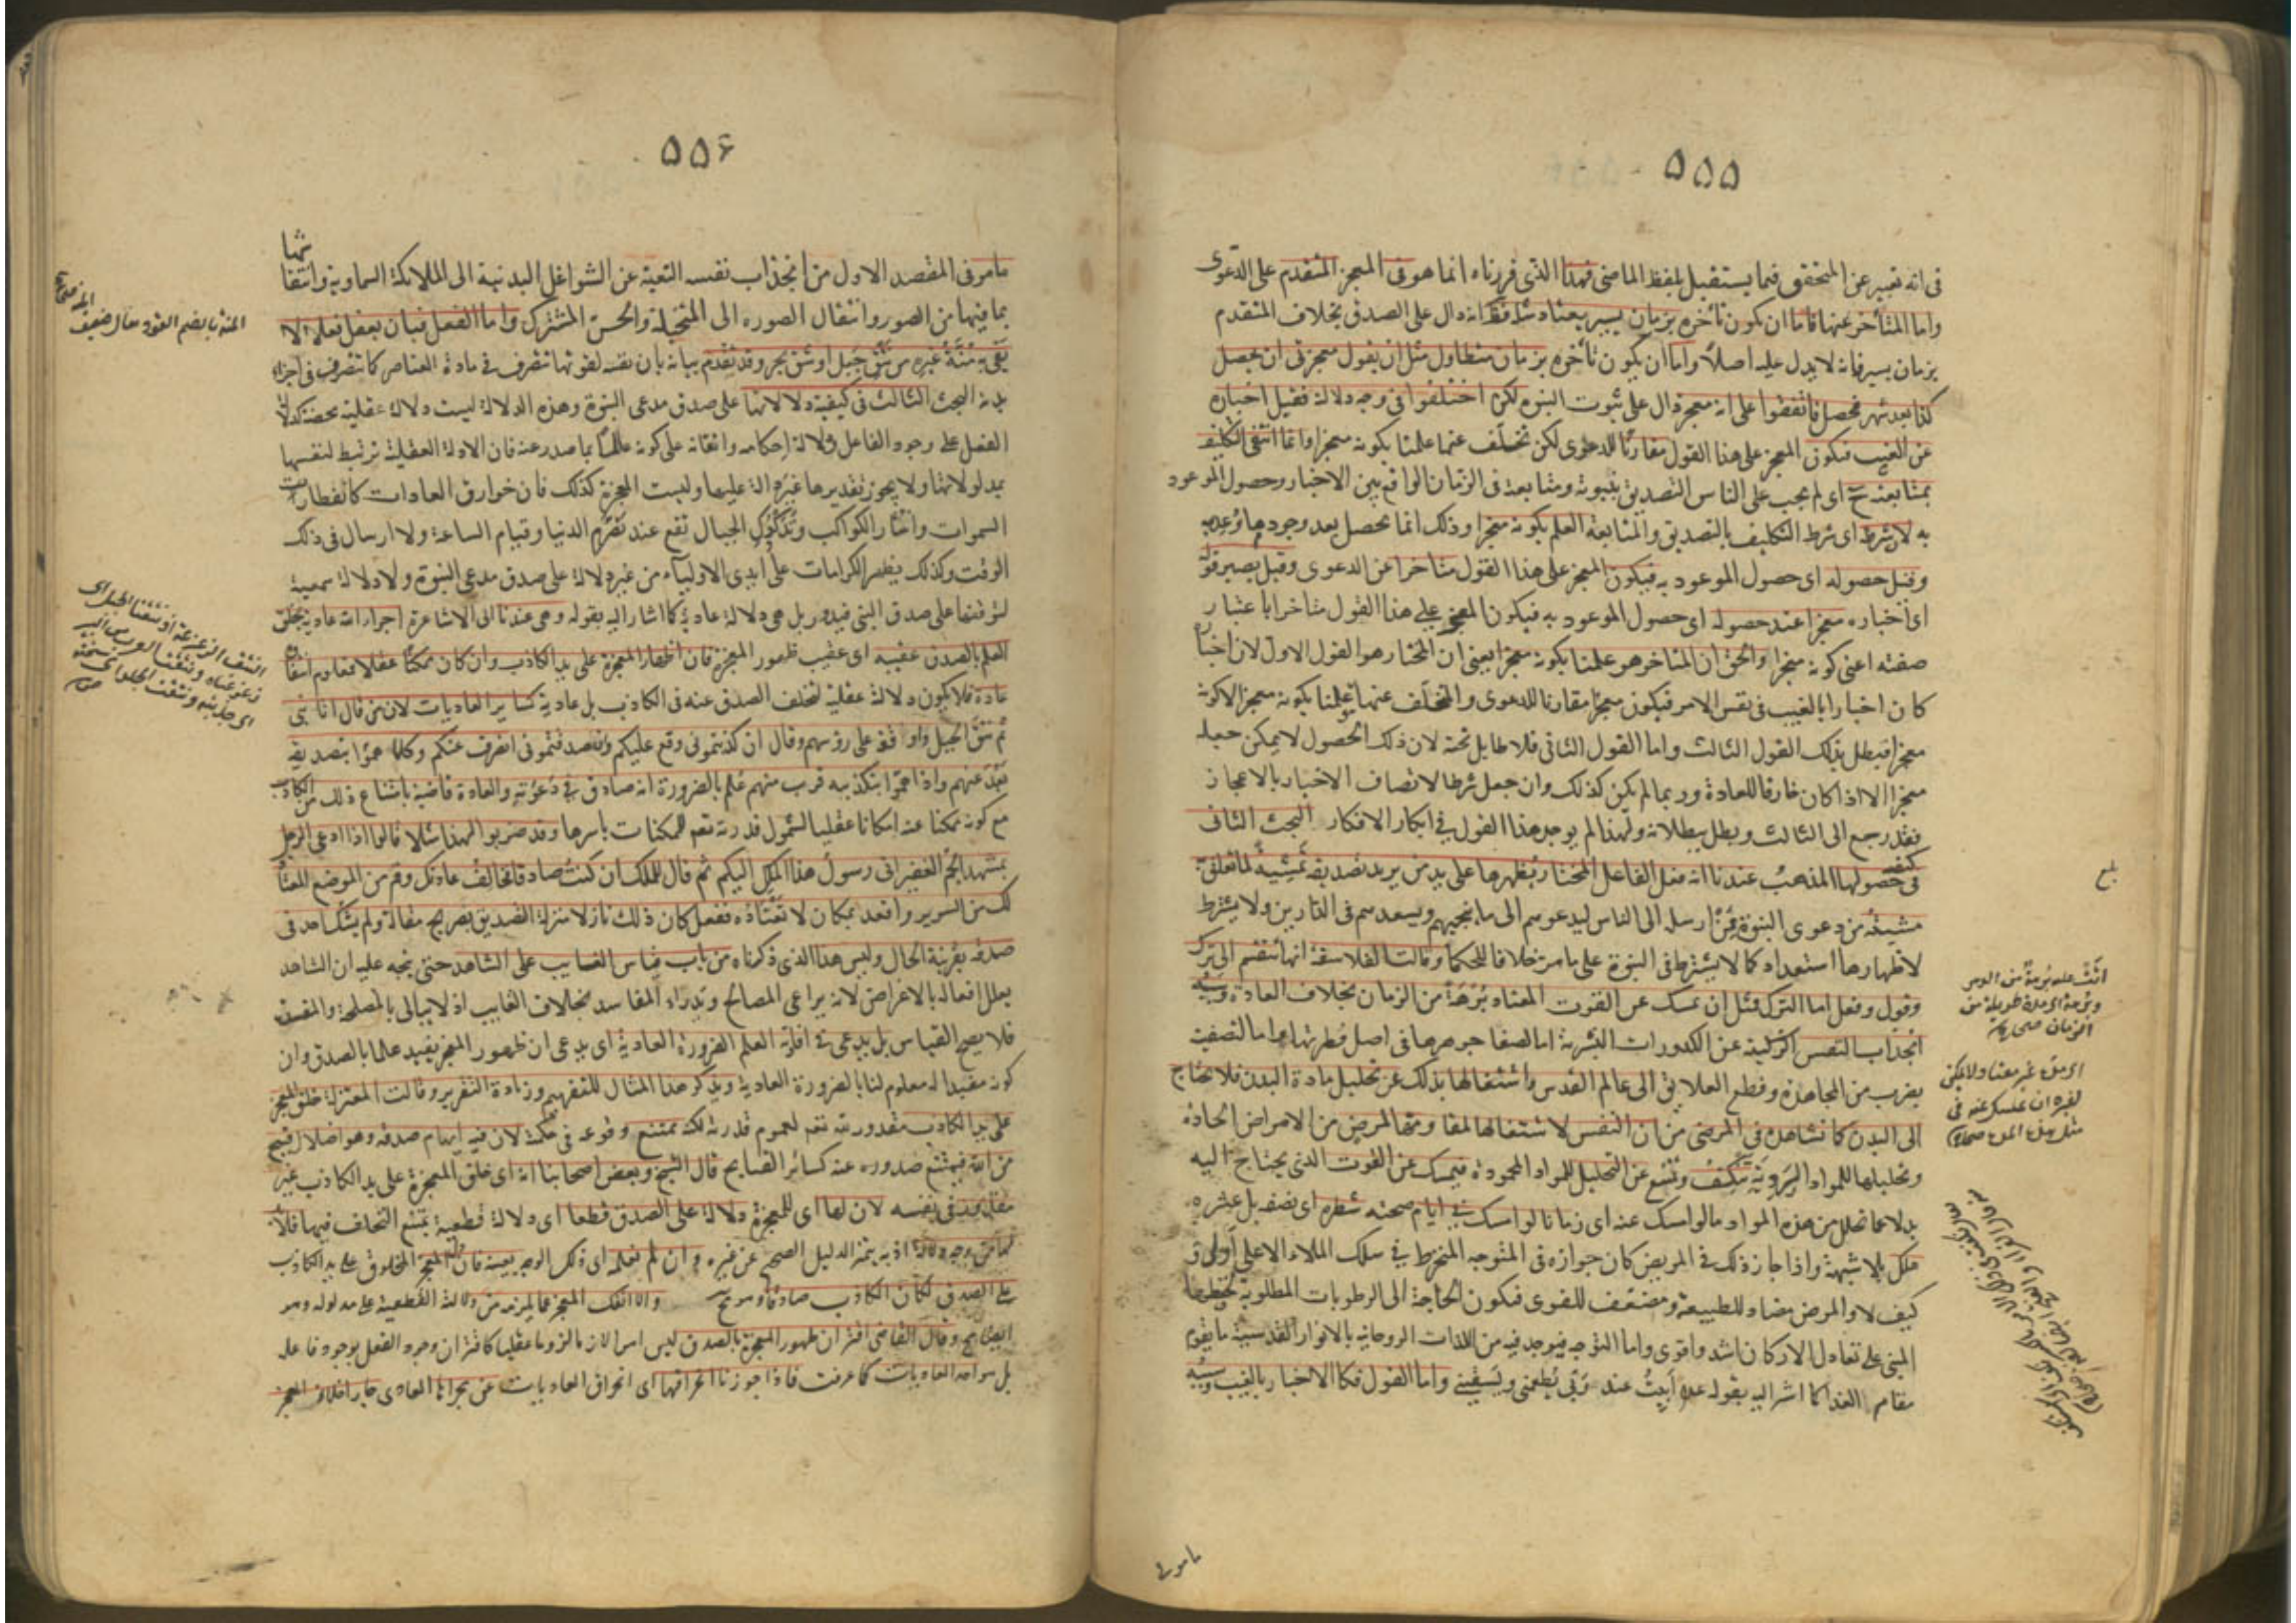 ٥٥٥
فى انه تعبير عن المتحقق فيما يستقبل بلفظ الماضى فهذا الذى قررناه انما هو فى المعجز المتقدم على الدعوى
واما المتأخر عنها فاما ان يكون تأخره بزمان يسير يعتاد مثله فظ انه دال على الصدق بخلاف المتقدم
بزمان يسير فانه لا يدل عليه اصلا واما ان يكون تأخره بزمان متطاول مثل ان يقول معجزتى ان يحصل
كذا بعد شهر فحصل فاتفقوا على انه معجز دال على ثبوت النبوة لكن اختلفوا فى وجه دلالة فقيل اخباره
عن الغيب فيكون المعجز على هذا القول مقارنا للدعوى لكن تخلف عنها علمنا بكونه معجزا وانما انتفى التكليف
بمتابعته ح اى لم يجب على الناس التصديق بنبوته ومتابعته فى الزمان الواقع بين الاخبار وحصول الموعود
به لان شرطه اى شرط التكليف بالتصديق والمتابعة العلم بكونه معجزا وذلك انما يحصل بعد وجود ما وعد به
وقيل حصوله اى حصول الموعود به فيكون المعجز على هذا القول متاخرا عن الدعوى وقيل يصير قوله
اى اخباره معجزا عند حصوله اى حصول الموعود به فيكون المعجز على هذا القول متاخرا باعتبار
صفته اعنى كونه معجزا والحق ان المتاخر هو علمنا بكونه معجزا يعنى ان المختار هو القول الاول لان اخباره
كان اخبارا بالغيب فى نفس الامر فيكون معجزا مقارنا للدعوى والتخلف عنها علمنا بكونه معجزا لا كونه
معجزا فبطل بذلك القول الثالث واما القول الثانى فلا طايل تحته لان ذلك الحصول لا يمكن جعله
معجزا الا اذا كان خارقا للعادة وربما لم يكن كذلك وان جعل شرطا لاتصاف الاخبار بالاعجاز
فقد رجع الى الثالث وبطل ببطلانه ولهذا لم يوجد هذا القول فى ابكار الافكار البحث الثانى
فى كيفية حصولها المذهب عندنا انه فعل الفاعل المختار يظهرها على يد من يريد تصديقه بمشيته لما تعلق به
مشيته من دعوى النبوة ممن ارسله الى الناس ليدعوهم الى ما ينجيهم ويسعدهم فى الدارين ولا يشترط
لاظهارها استعداد كما لا يشترط فى النبوة على ما مر خلافا للحكما وقالت الفلاسفة انها تنقسم الى ترك
وقول وفعل اما الترك فمثل ان يمسك عن القوت المعتاد برهة من الزمان بخلاف العادة وسببه
انجذاب النفس الزكية عن الكدورات البشرية اما لصفا جوهرها فى اصل فطرتها او اما لتصفيتها
بضرب من المجاهدة وقطع العلايق الى عالم القدس واشتغالها بذلك عن تحليل مادة البدن فلا تحتاج
الى البدل كما نشاهده فى المرضى من ان النفس لاشتغالها لمقاومة المرض من الامراض الحادة
وتحليلها للمواد الردية تنكف وتمنع عن التحليل للمواد المحمودة فيمسك عن القوت الذى يحتاج اليه
بدلا عما تحلل من هذه المواد ما لو امسك عنه اى زمانا لو امسك فى ايام صحته شطره اى نصفه بل عشره
هلك بلا شبهة واذا جاز ذلك فى المريض كان جوازه فى المتوجه المنخرط فى سلك الملاء الاعلى اولى و
كيف لا والمرض مضاد للطبيعة ومضعف للقوى فيكون الحاجة الى الرطوبات المطلوبة لحفظها
المبنى على تعادل الاركان اشد واقوى واما التوجه فيوجد فيه من اللذات الروحانية بالانوار القدسية ما يقوم
مقام الغذا كما اشار اليه بقوله عم ابيت عند ربى يطعمنى ويسقينى واما القول فكالاخبار بالغيب وسببه
بلغ
اتت عليه برهة من الدهر
وبرهة اى مدة طويلة من
الزمان صحاح
اى مدة غير معتاد ولا يمكن
لغيره ان يمسك عنه فى
مثل هذه المدة
مامر فى
٥٥٦
مامر فى المقصد الاول من انجذاب نفسه النقية عن الشواغل البدنية الى الملائكة السماوية وانتقاشها
بما فيها من الصور وانتقال الصورة الى المتخيلة والحس المشترك واما الفعل فبان يفعل فعلا لا
يفى به منة غيره من نتق جبل او شق بحر وقد تقدم بيانه بان نفسه لقوتها تتصرف فى مادة العناصر كما تتصرف فى اجزاء
بدنه البحث الثالث فى كيفية دلالتها على صدق مدعى النبوة وهذه الدلالة ليست دلالة عقلية محضة كدلالة
الفعل على وجود الفاعل ودلالة احكامه واتقانه على كونه عالما بما صدر عنه فان الادلة العقلية ترتبط لنفسها
بمدلولاتها ولا يجوز تقديرها غير دالة عليها وليست المعجزة كذلك فان خوارق العادات كانفطار
السموات وانتثار الكواكب وتدكدك الجبال تقع عند تصرم الدنيا وقيام الساعة ولا ارسال فى ذلك
الوقت وكذلك يظهر الكرامات على ايدى الاولياء من غير دلالة على صدق مدعى النبوة ولا دلالة سمعية
لتوقفها على صدق النبى فيدور بل هى دلالة عادية كما اشار اليه بقوله وهى عندنا اى الاشاعرة اجراء الله عادته بخلق
العلم بالصدق عقيبه اى عقيب ظهور المعجزة فان اظهار المعجزة على يد الكاذب وان كان ممكنا عقلا فمعلوم انتفاؤه
عادة فلا يكون دلالة عقلية لتخلف الصدق عنه فى الكاذب بل عادية كسائر العاديات لان من قال انا نبى
ثم نتق الجبل واوقفه على رؤسهم وقال ان كذبتمونى وقع عليكم وان صدقتمونى انصرف عنكم وكلما هموا بتصديقه
بعد عنهم واذا هموا بتكذيبه قرب منهم علم بالضرورة انه صادق فى دعوته والعادة قاضية بامتناع ذلك من الكاذب
مع كونه ممكنا عنه امكانا عقليا لشمول قدرته تعم للممكنات باسرها وقد ضربوا لهذا مثلا قالوا اذا ادعى الرجل
بمشهد الجم الغفير انى رسول هذا الملك اليكم ثم قال للملك ان كنت صادقا فخالف عادتك وقم من الموضع المعتاد
لك من السرير واقعد بمكان لا تعتاده ففعل كان ذلك نازلا منزلة التصديق بصريح مقاله ولم يشك احد فى
صدقه بقرينة الحال وليس هذا الذى ذكرناه من باب قياس الغايب على الشاهد حتى يتجه عليه ان الشاهد
يعلل افعاله بالاغراض لانه يراعى المصالح ويدراء المفاسد بخلاف الغايب اذ لا يبالى بالمصلحة والمفسدة
فلا يصح القياس بل ندعى فى افادته العلم الضرورة العادية اى ندعى ان ظهور المعجز يفيد علما بالصدق وان
كونه مفيدا له معلوم لنا بالضرورة العادية ونذكر هذا المثال للتفهيم وزيادة التقرير وقالت المعتزلة خلق المعجز
على يد الكاذب مقدور لله تعم لعموم قدرته لكنه ممتنع وقوعه فى حكمته لان فيه ايهام صدقه وهو اضلال قبيح
من الله فيمتنع صدوره عنه كسائر القبايح قال الشيخ وبعض اصحابنا انه اى خلق المعجزة على يد الكاذب غير
مقدور فى نفسه لان لها اى للمعجزة دلالة على الصدق قطعا اى دلالة قطعية يمتنع التخلف فيها فلا بد
لها من وجه دلالة اذ به يتميز الدليل الصحيح عن غيره وان لم نعلمه اى ذلك الوجه بعينه فان دل المعجز المخلوق على يد الكاذب
على الصدق لكان الكاذب صادقا وهو مح والا انفك المعجز عما يلزمه من دلالته القطعية على مدلوله وهو
ايضا مح وقال القاضى اقتران ظهور المعجزة بالصدق ليس امرا لازما لزوما عقليا كاقتران وجود الفعل بوجود فاعله
بل هو احد العاديات كما عرفت فاذا جوزنا انخراقها اى انخراق العاديات عن مجراها العادى جاز اخلاء المعجز
المنة بالضم القوة يقال ضعيف
المنة صحاح
النتق الزعزعة او نتقنا الجبل اى
زعزعناه ونتقت الدلو من البئر
اى جذبته ونتقت الجلد اى سلخته
صحاح